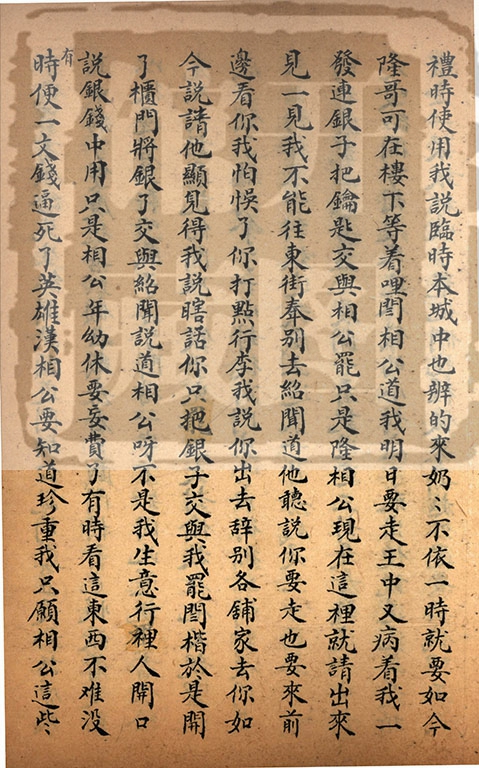 禮時使用我說臨時本城中也辨的來奶〻不依一時就要如今
隆哥可在樓下等着哩閆相公道我明日要走王中又病着我一
發連銀子把鑰匙交與相公罷只是隆相公現在這裡就請出來
見一見我不能徃東街奉别去紹聞道他聽說你要走也要來前
邊看你我怕悞了你打點行李我說你出去辞别各舖家去你如
今說請他顯見得我說瞎話你只把銀子交與我罷閆楷於是開
了櫃門將銀了交與紹聞說道相公呀不是我生意行裡人開口
說銀錢中用只是相公年幼休要妄費了有時看這東西不难没
有時便一文錢逼死了英雄漢相公要知道珍重我只願相公這些